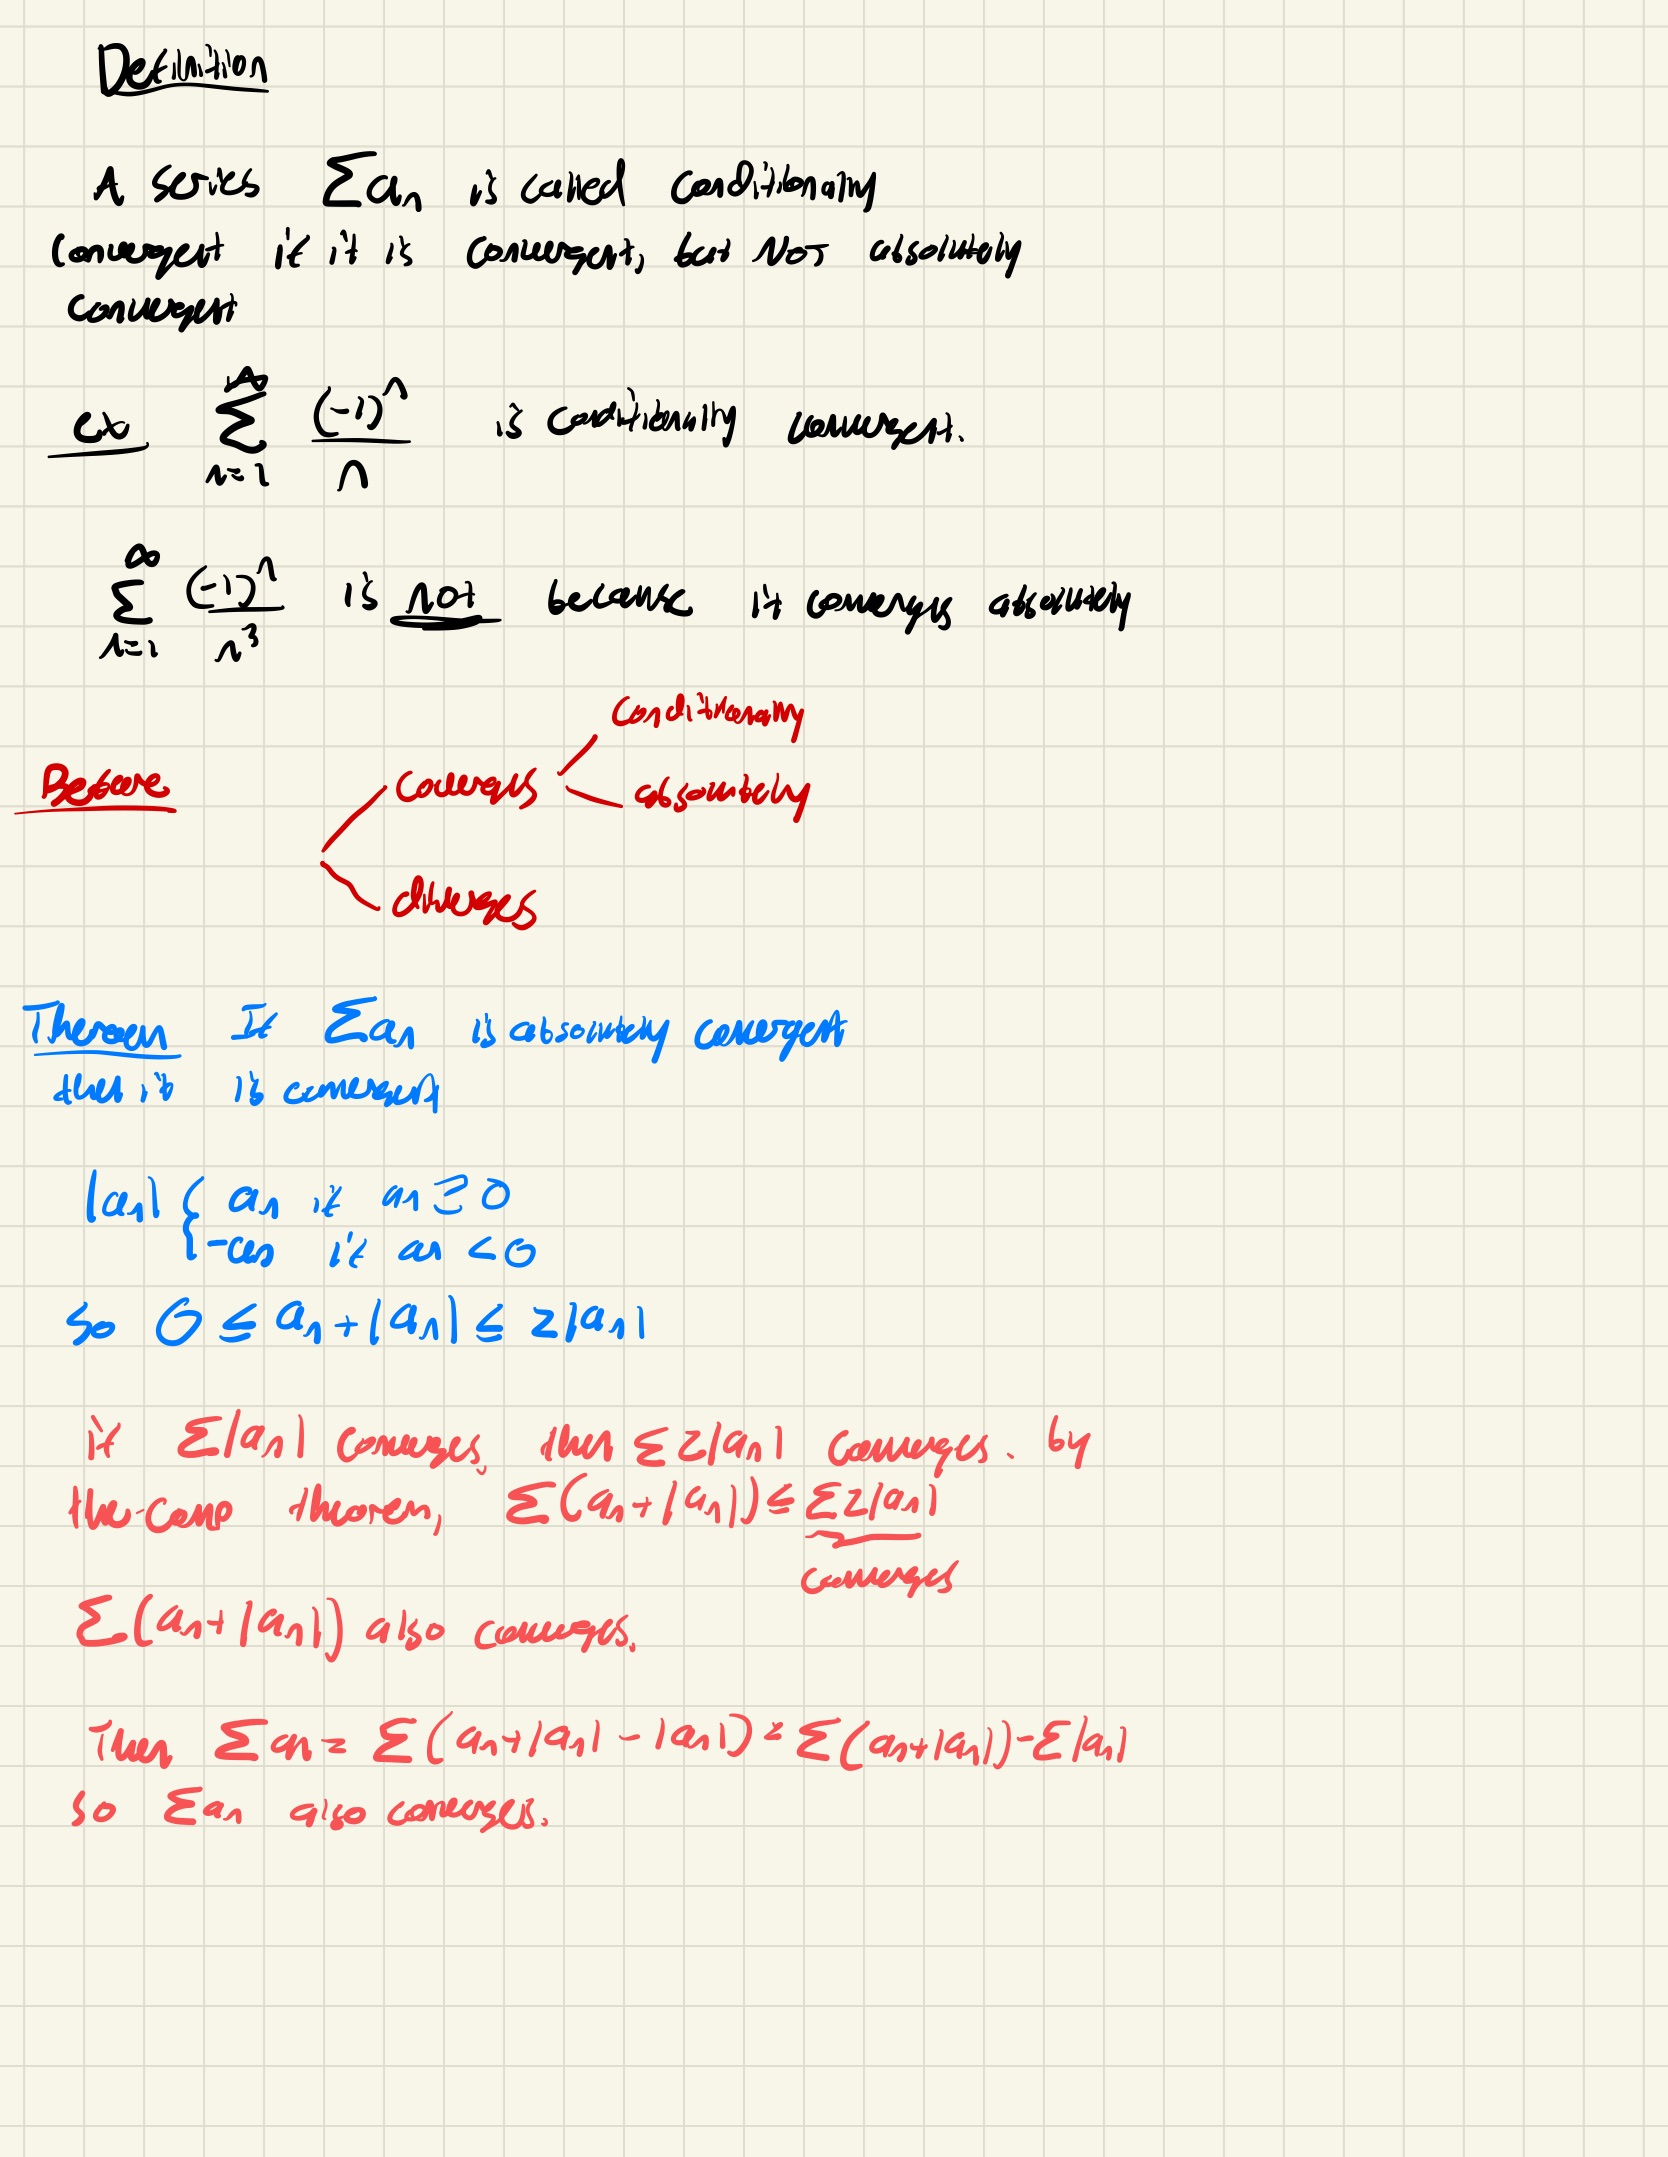 Definition
A series Σaₙ is called conditionally
convergent if it is convergent, but NOT absolutely
convergent
ex ∞ Σ n=1 (-1)ⁿ / n is conditionally convergent.
∞ Σ n=1 (-1)ⁿ / n³ is not because it converges absolutely
conditionally
Before converges absolutely
diverges
Theorem If Σaₙ is absolutely convergent
then it is convergent
|aₙ| { aₙ if aₙ ≥ 0
-aₙ if aₙ < 0
so 0 ≤ aₙ + |aₙ| ≤ 2|aₙ|
if Σ|aₙ| converges, then Σ2|aₙ| converges. by
the comp theorem, Σ(aₙ+|aₙ|) ≤ Σ2|aₙ|
converges
Σ(aₙ+|aₙ|) also converges.
Then Σaₙ = Σ(aₙ+|aₙ| - |aₙ|) = Σ(aₙ+|aₙ|) - Σ|aₙ|
so Σaₙ also converges.